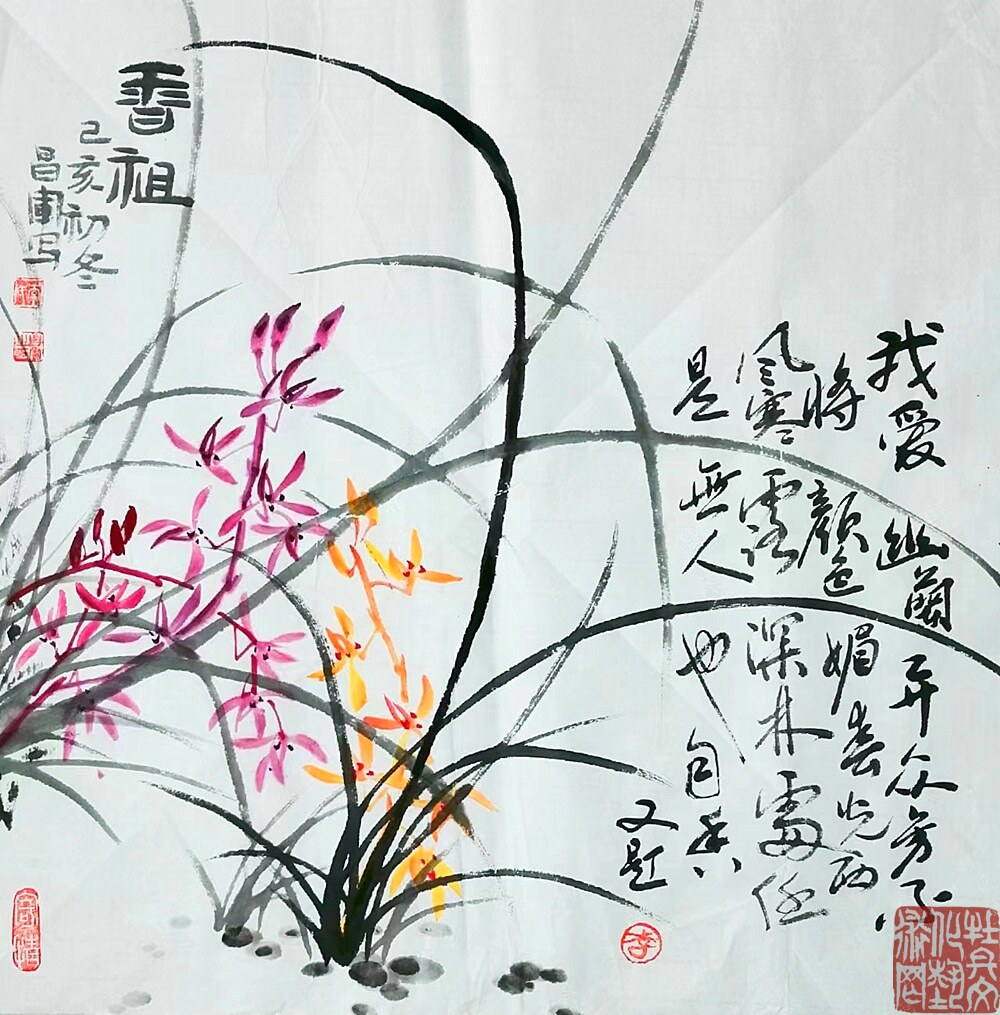 香祖
己亥初冬
昌圃写
我爱幽蘭异众芳不
將颜色媚春光西
风寒露深林處任
是無人也自香
又题
李